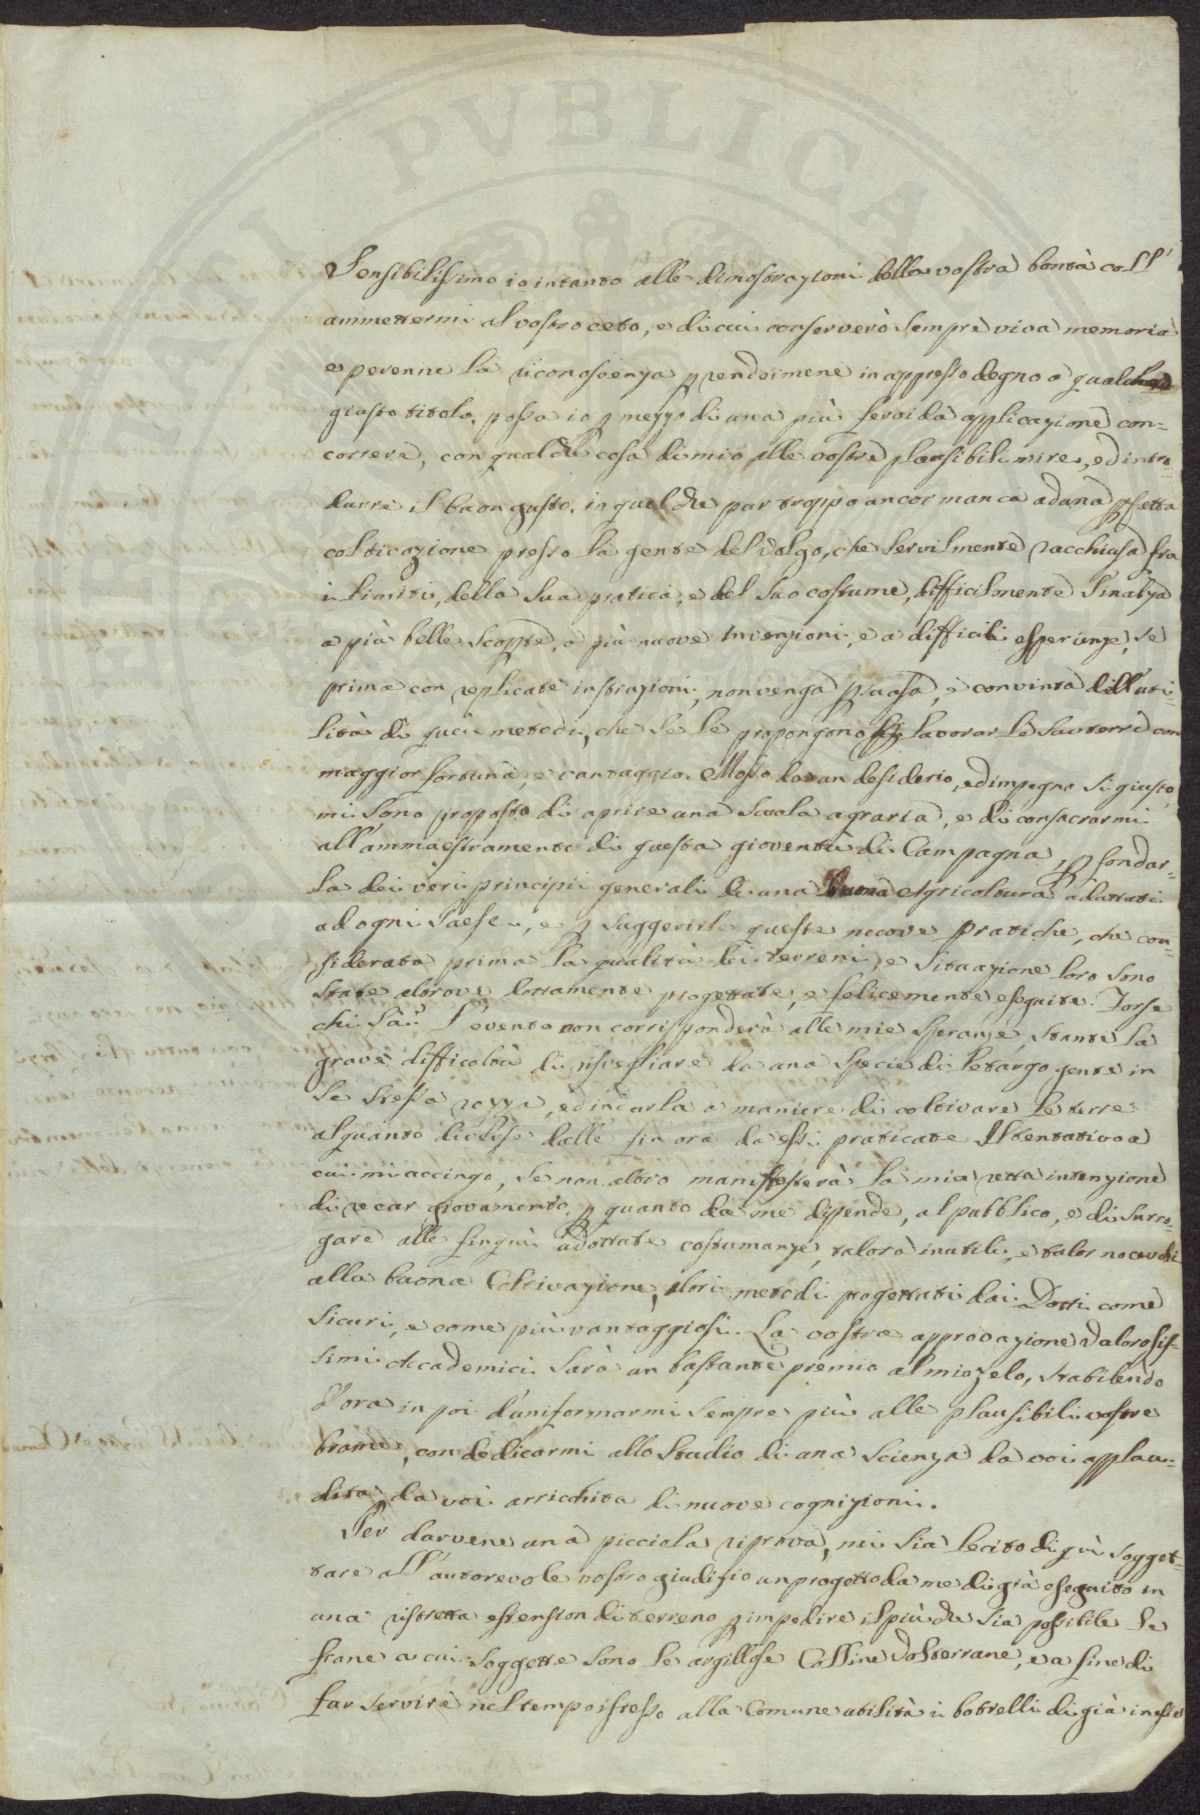 PVBLICAE
Sensibilissimo io intanto alle dimostrazioni della vostra bontà coll'
ammettermi al vostro ceto, e di cui conserverò sempre viva memoria
e perenne la riconoscenza p rendermene in appresso degno a qualche
giusto titolo, possa io p mezzo di una più fervida applicazione con=
correre, con qualche cosa di mio alle vostre plausibili mire, ed intro=
durre il buon gusto, in quel che pur troppo ancor manca ad una pfetta
coltivazione presso la gente del volgo, che servilmente racchiusa fra
i limiti, della sua pratica, e del suo costume, difficilmente s'inalza
a più belle scopte, a più nuove invenzioni, e a difficili esperienze, se
prima con replicate instruzioni, non venga psuasa, e convinta dell'uti=
lità di quei metodi, che se le propongono p lavorar le sue terre con
maggior fortuna, e vantaggio. Mosso da un desiderio, ed impegno sì giusto,
mi sono proposto di aprire una Scuola agraria, e di consacrarmi
all'ammaestramento di questa gioventù di Campagna, p fondar=
la dei veri principii generali di una buona Agricoltura adattati
ad ogni Paese, e p suggerirle queste nuove pratiche, che con=
siderata prima la qualità dei terreni, e situazione loro sono
state altrove dottamente progettate, e felicemente eseguite. Forse
chi sà? l'evento non corrisponderà alle mie speranze, stante la
grave difficoltà di risvegliare da una specie di letargo gente in
se stessa rozza, ed indurla a maniere di coltivare le terre
alquanto diverse dalle fin ora da essi praticate Il tentativo a
cui mi accingo, se non altro manifesterà la mia retta intenzione
di recar giovamento p quanto da me dipende, al pubblico, e di surro=
gare alle finquì adottate costumanze, talora inutili, e talor nocevoli
alla buona Coltivazione, altri metodi progettati dai Dotti come
sicuri, e come più vantaggiosi. La vostra approvazione Valorosis=
simi Accademici sarà un bastante premio al mio zelo, stabilendo
d'ora in poi d'uniformarmi sempre più alle plausibili vostre
brame, con dedicarmi allo studio di una Scienza da voi applau=
dita, da voi arricchita di nuove cognizioni.
Per darvene una picciola riprova, mi sia lecito di quì sogget=
tare all'autorevole vostro giudizio un progetto da me di già eseguito in
una ristretta estension di terreno p impedire il più che sia possibile le
frane a cui soggette sono le argillose Colline Volterrane, e a fine di
far servire nel tempo istesso alla Comune utilità i botrelli di già in esse